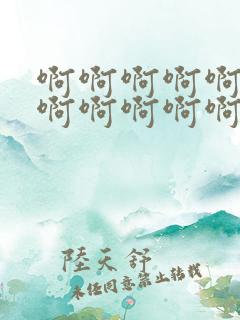 啊啊啊啊啊
啊啊啊啊啊
陸天舒
未经同意禁止转载